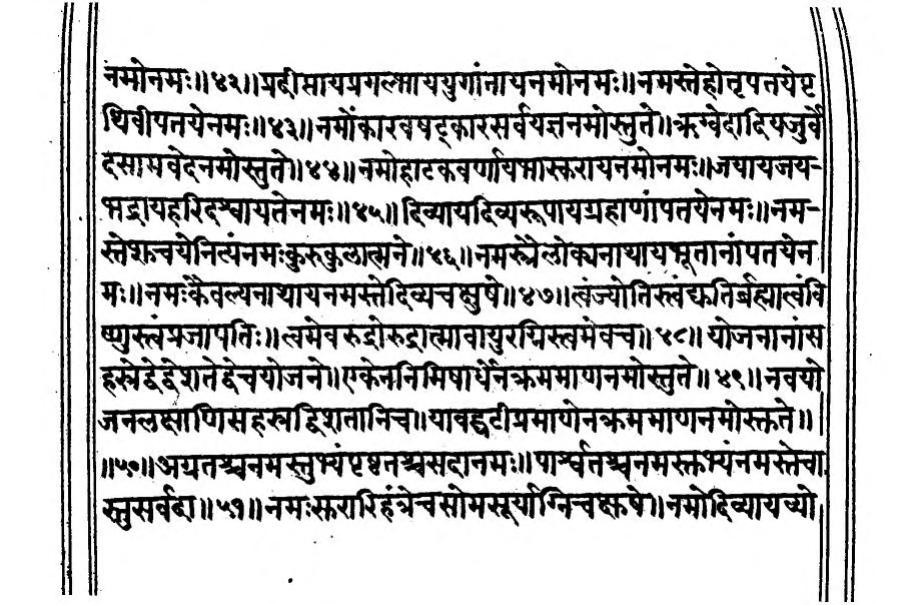 नमोनमः॥४२॥प्रदीप्तायप्रगल्भाययुगांतायनमोनमः॥नमस्तेहोतृपतयेपृ
थिवीपतयेनमः॥४३॥नमोंकारवषट्कारसर्वयज्ञनमोस्तुते॥ऋग्वेदादियजुर्वे
दसामवेदनमोस्तुते॥४४॥नमोहाटकवर्णायभास्करायनमोनमः॥जयायजय-
भद्रायहरिदश्वायतेनमः॥४५॥दिव्यायदिव्यरूपायग्रहाणांपतयेनमः॥नम-
स्तेशुचयेनित्यंनमःकुरुकुलात्मने॥४६॥नमस्त्रैलोक्यनाथायभूतानांपतयेन
मः॥नमःकैवल्यनाथायनमस्तेदिव्यचक्षुषे॥४७॥त्वंज्योतिस्त्वंद्युतिर्ब्रह्मात्वंवि
ष्णुस्त्वंप्रजापतिः॥त्वमेवरुद्रोरुद्रात्मावायुरग्निस्त्वमेवच॥४८॥योजनानांस
हस्रेद्वेद्वेशतेद्वेचयोजने॥एकेननिमिषार्धेनक्रममाणनमोस्तुते॥४९॥नवयो
जनलक्षाणिसहस्रद्विशतानिच॥यावद्घटीप्रमाणेनक्रममाणनमोस्तुते॥
॥५०॥अग्रतश्चनमस्तुभ्यंपृष्ठतश्चसदानमः॥पार्श्वतश्चनमस्तुभ्यंनमस्तेचा
स्तुसर्वदा॥५१॥नमःसुरारिहंत्रेचसोमसूर्याग्निचक्षुषे॥नमोदिव्यायव्यो